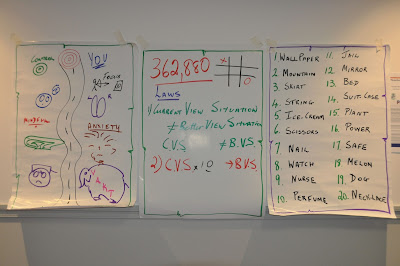 CONTROL
YOU
FOCUS
MINDFUL
ANXIETY
362,880
X
O
LAWS
1) CURRENT VIEW SITUATION
≠ BETTER VIEW SITUATION
C.V.S. ≠ B.V.S.
2) C.V.S. x 10 → B.V.S.
1 WALLPAPER
2 MOUNTAIN
3 SKIRT
4 STRING
5 ICE-CREAM
6 SCISSORS
7 NAIL
8 WATCH
9 NURSE
10. PERFUME
11. JAIL
12 MIRROR
13 BED
14 SUIT-CASE
15 PLANT
16 POWER
17 SAFE
18 MELON
19. DOG
20. NECKLACE